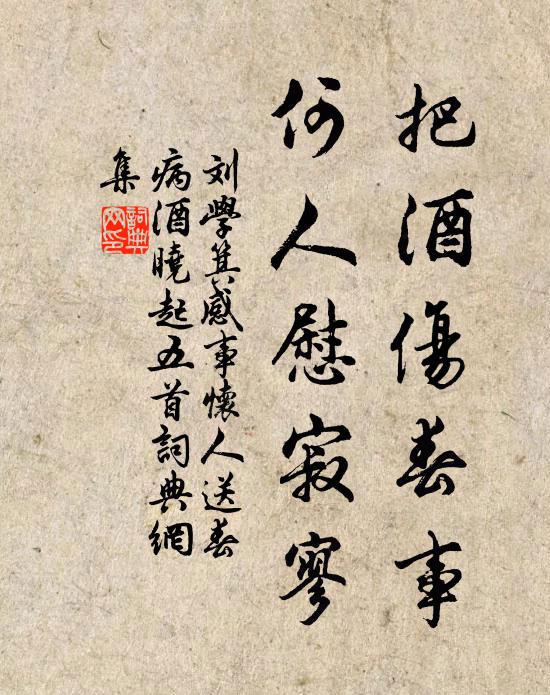 把酒傷春事
何人慰寂寥
刘學箕感事懷人送春
病酒曉起五首詞典網
集
詞典
网印